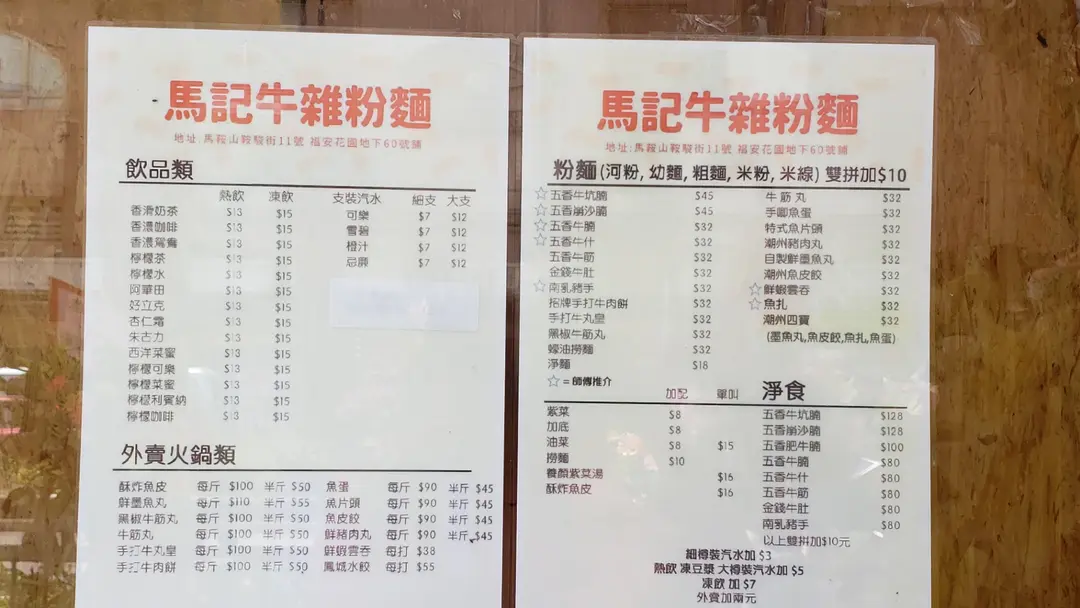 馬記牛雜粉麵
地址:馬鞍山鞍駿街11號 福安花園地下60號舖
飲品類
熱飲 凍飲 支裝汽水 細支 大支
香滑奶茶 $13 $15 可樂 $7 $12
香濃咖啡 $13 $15 雪碧 $7 $12
香濃鴛鴦 $13 $15 橙汁 $7 $12
檸檬茶 $13 $15 忌廉 $7 $12
檸檬水 $13 $15
阿華田 $13 $15
好立克 $13 $15
杏仁霜 $13 $15
朱古力 $13 $15
西洋菜蜜 $13 $15
檸檬可樂 $13 $15
檸檬菜蜜 $13 $15
檸檬利賓納 $13 $15
檸檬咖啡 $13 $15
外賣火鍋類
酥炸魚皮 每斤 $100 半斤 $50 魚蛋 每斤 $90 半斤 $45
鮮墨魚丸 每斤 $110 半斤 $55 魚片頭 每斤 $90 半斤 $45
黑椒牛筋丸 每斤 $100 半斤 $50 魚皮餃 每斤 $90 半斤 $45
牛筋丸 每斤 $100 半斤 $50 鮮豬肉丸 每斤 $90 半斤 $45
手打牛丸皇 每斤 $100 半斤 $50 鮮蝦雲吞 每打 $38
手打牛肉餅 每斤 $100 半斤 $50 鳳城水餃 每打 $55
馬記牛雜粉麵
地址:馬鞍山鞍駿街11號 福安花園地下60號舖
粉麵(河粉, 幼麵, 粗麵, 米粉, 米線) 雙拼加$10
☆五香牛坑腩 $45 牛筋丸 $32
☆五香崩沙腩 $45 手唧魚蛋 $32
☆五香牛腩 $32 特式魚片頭 $32
☆五香牛什 $32 潮州豬肉丸 $32
五香牛筋 $32 自製鮮墨魚丸 $32
金錢牛肚 $32 潮州魚皮餃 $32
☆南乳豬手 $32 ☆鮮蝦雲吞 $32
招牌手打牛肉餅 $32 ☆魚扎 $32
手打牛丸皇 $32 潮州四寶 $32
黑椒牛筋丸 $32 (墨魚丸,魚皮餃,魚扎,魚蛋)
蠔油撈麵 $32
淨麵 $18
☆ = 師傅推介
加配 單叫 淨食
紫菜 $8 五香牛坑腩 $128
加底 $8 五香崩沙腩 $128
油菜 $8 $15 五香肥牛腩 $100
撈麵 $10 五香牛腩 $80
養顏紫菜湯 $16 五香牛什 $80
酥炸魚皮 $16 五香牛筋 $80
金錢牛肚 $80
南乳豬手 $80
以上雙拼加$10元
細樽裝汽水加 $3
熱飲 凍豆漿 大樽裝汽水加 $5
凍飲 加 $7
外賣加兩元